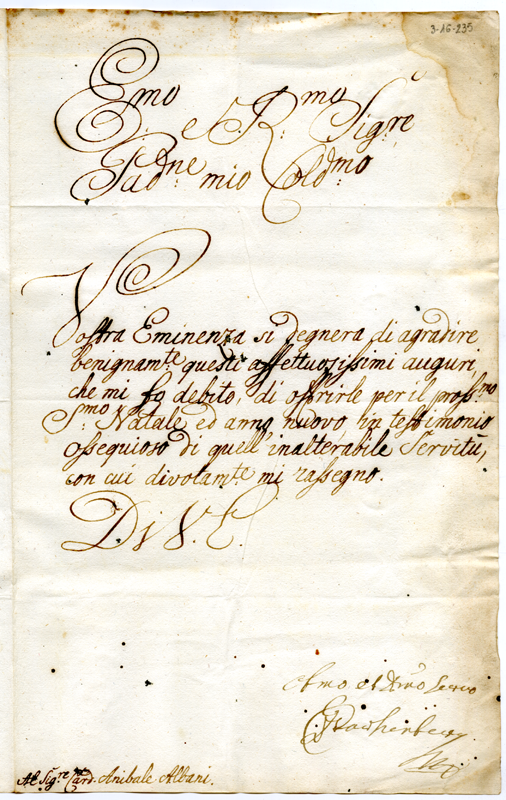 3-16-235
Emo e Rmo Sigre
Padne mio Colmo
Vostra Eminenza si degnerà di agradire
benignamte questi affettuosissimi auguri,
che mi fo debito, di offrirle per il prossmo
Smo Natale, ed anno nuovo, in testimonio
ossequioso di quell' inalterabile Servitù,
con cui divotamte mi rassegno.
Di V. E.
Al Sigre Card. Anibale Albani.